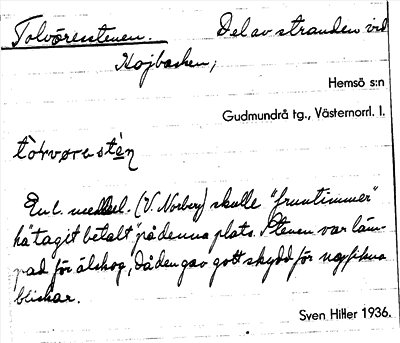 Tolvöresstenen. Del av stranden vid
Hojbacken;
Hemsö s:n
Gudmundrå tg., Västernorrl. l.
tòḷvørestén
Enl. meddel. (V. Norberg) skulle "fruntimmer"
ha "tagit betalt" på denna plats. Stenen var läm-
pad för älskog, då den gav gott skydd för nyfikna
blickar.
Sven Hitler 1936.